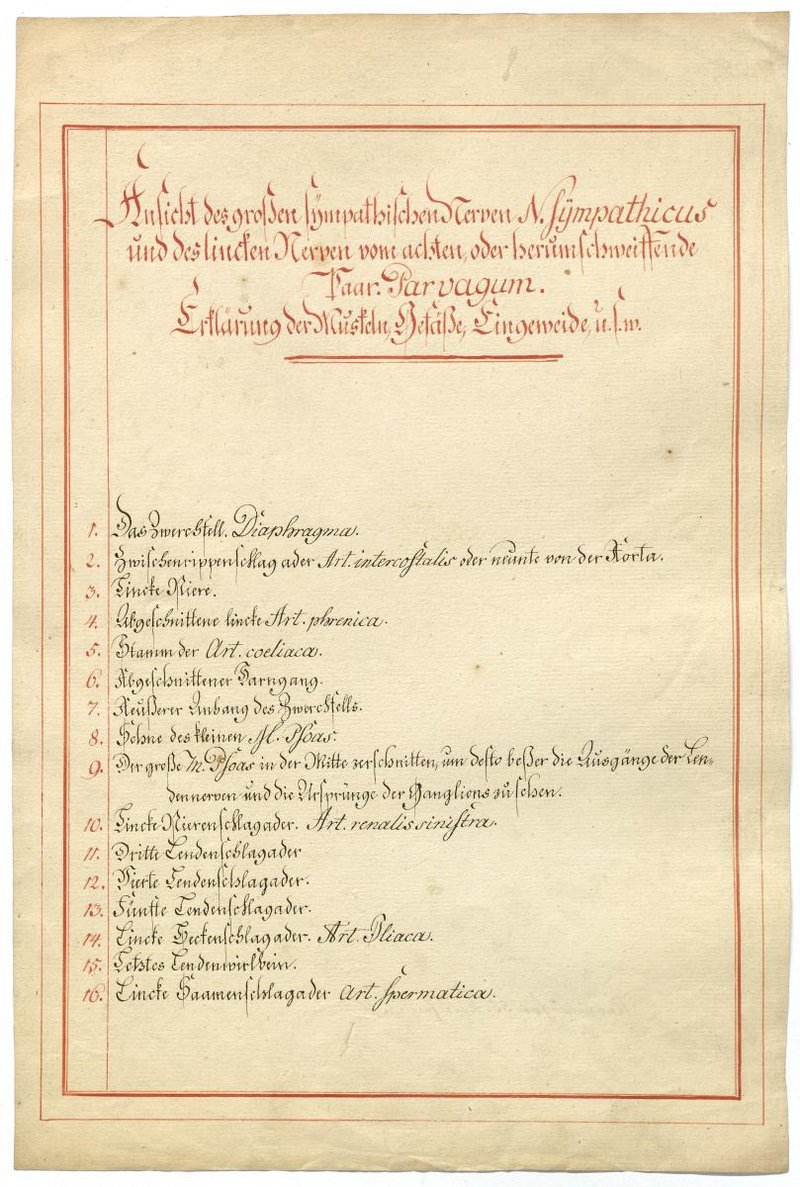 Ansicht des großen sÿmpathischen Nerven N. Sÿmpathicus
und des lincken Nerven vom achten, oder herumschweiffende
Paar. Par vagum.
Erklärung der Muskeln, Gefäße, Eingeweide, u. s. w.
1. Das Zwerchfell. Diaphragma.
2. Zwischenrippenschlagader Art. intercostalis oder neunte von der Aorta.
3. Lincke Niere.
4. Abgeschnittene lincke Art. phrenica.
5. Stamm der Art. coeliaca.
6. Abgeschnittener Harngang.
7. Aeußerer Anhang des Zwerchfells.
8. Sehne des kleinen M. Psoas.
9. Der große M. Psoas in der Mitte zerschnitten, um desto beßer die Ausgänge der Len-
dennerven und die Ursprünge der Gangliens zu sehen.
10. Lincke Nierenschlagader. Art. renalis sinistra.
11. Dritte Lendenschlagader
12. Vierte Lendenschlagader.
13. Fünfte Lendenschlagader.
14. Lincke Beckenschlagader. Art. Iliaca.
15. Letztes Lendenwirlbein.
16. Lincke Saamenschlagader Art. spermatica.